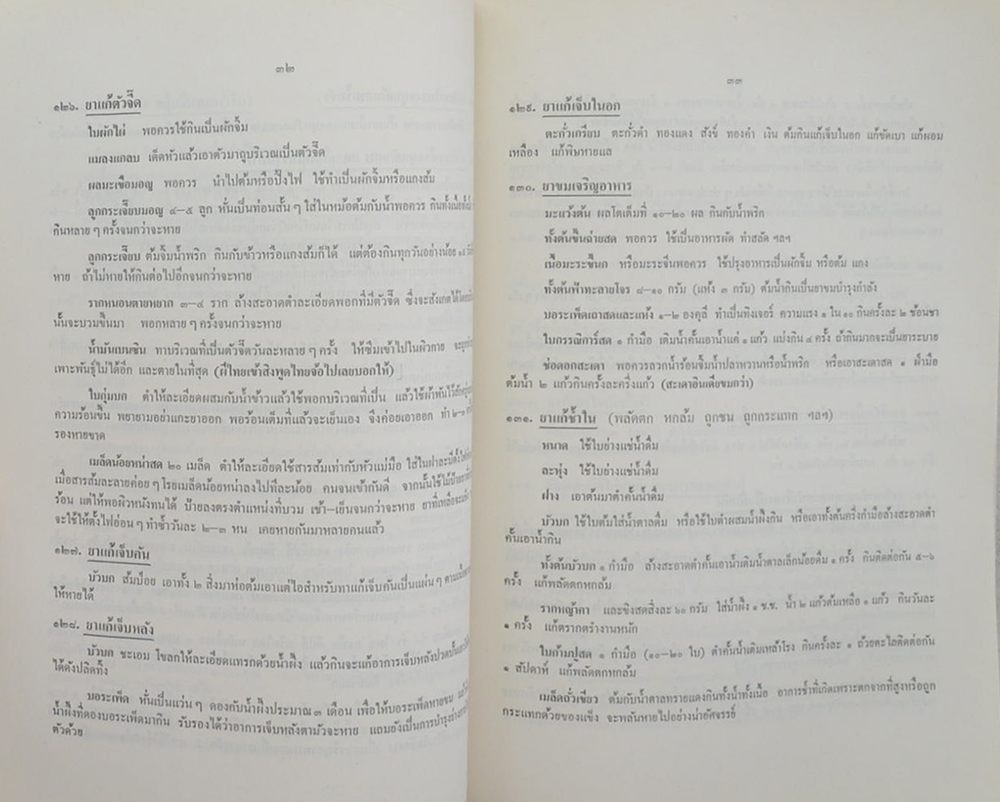 ๓๒
๑๒๖. ยาแก้ตัวจี๊ด
ใบผักไผ่ พอควรใช้กินเป็นผักจิ้ม
แมลงแกลบ เด็ดหัวแล้วเอาตัวมาถูบริเวณเป็นตัวจี๊ด
ผลมะเขือมอญ พอควร นำไปต้มหรือปิ้งไฟ ใช้ทำเป็นผักจิ้มหรือแกงส้ม
ลูกกระเจี๊ยบมอญ ๔-๕ ลูก หั่นเป็นท่อนสั้น ๆ ใส่ในหม้อต้มกับน้ำพอควร
กินหลาย ๆ ครั้งจนกว่าจะหาย
ลูกกระเจี๊ยบ ต้มจิ้มน้ำพริก กินกับข้าวหรือแกงส้มก็ได้ แต่ต้องกินทุกวันอย่างน้อย ๑๕
หาย ถ้าไม่หายให้กินต่อไปอีกจนกว่าจะหาย
รากหนอนตายหยาก ๓-๔ ราก ล้างสะอาดตำละเอียดพอกที่มีตัวจี๊ด ซึ่งจะสังเกตได้
นั้นจะบวมขึ้นมา พอกหลาย ๆ ครั้งจนกว่าจะหาย
น้ำมันเบนซิน ทาบริเวณที่เป็นตัวจี๊ดวันละหลาย ๆ ครั้ง ให้ซึมเข้าไปในผิวกาย
เพาะพันธุ์ไม่ได้อีก และตายในที่สุด (ผีไทยเข้าสิงพูดไทยจ้อไปเลยบอกให้)
ใบกุ่มบก ตำให้ละเอียดผสมกับน้ำข้าวแล้วใช้พอกบริเวณที่เป็น แล้วใช้ผ้าพันไว้
ความร้อนขึ้น พยายามอย่าแกะยาออก พอร้อนเต็มที่แล้วจะเย็นเอง จึงค่อยเอาออก ทำ ๒-๓
รองหายขาด
เมล็ดน้อยหน่าสด ๒๐ เมล็ด ตำให้ละเอียดใช้สารส้มเท่ากับหัวแม่มือ ใส่ในฝาละมี
เมื่อสารส้มละลายค่อย ๆ โรยเมล็ดน้อยหน่าลงไปทีละน้อย คนจนเข้ากันดี จากนั้นใช้ไม้
ร้อน แต่ให้พอผิวหนังทนได้ ป้ายลงตรงตำแหน่งที่บวม เช้า-เย็นจนกว่าจะหาย ยาที่เหลือ
จะใช้ให้ตั้งไฟอ่อน ๆ ทำซ้ำวันละ ๒-๓ หน เคยหายกันมาหลายคนแล้ว
๑๒๗. ยาแก้เจ็บคัน
บัวบก ส้มป่อย เอาทั้ง ๒ สิ่งมาห่อต้มเอาแต่ไอสำหรับทาแก้เจ็บคันเป็นแผ่น ๆ
ให้หายได้
๑๒๘. ยาแก้เจ็บหลัง
บัวบก ชะเอม โขลกให้ละเอียดแทรกด้วยน้ำผึ้ง แล้วกินจะแก้อาการเจ็บหลังปวด
ได้ดังปลิดทิ้ง
บอระเพ็ด หั่นเป็นแว่น ๆ ดองกับน้ำผึ้งประมาณ ๓ เดือน เพื่อให้บอระเพ็ดหายขม
น้ำผึ้งที่ดองบอระเพ็ดมากิน รับรองได้ว่าอาการเจ็บหลังตามัวจะหาย แถมยังเป็นการบำรุงร่างกาย
ตัวด้วย
๓๓
๑๒๙. ยาแก้เจ็บในอก
ตะกั่วเกรียบ ตะกั่วดำ ทองแดง สังข์ ทองคำ เงิน ต้มกินแก้เจ็บในอก แก้ขัดเบา แก้ผอม
เหลือง แก้พิษหายแล
๑๓๐. ยาขมเจริญอาหาร
มะแว้งต้น ผลโตเต็มที่ ๑๐-๒๐ ผล กินกับน้ำพริก
ทั้งต้นขึ้นฉ่ายสด พอควร ใช้เป็นอาหารผัด ทำสลัด ฯลฯ
เนื้อมะระขี้นก หรือมะระจีนพอควร ใช้ปรุงอาหารเป็นผักจิ้ม หรือต้ม แกง
ทั้งต้นฟ้าทะลายโจร ๘-๑๐ กรัม (แห้ง ๓ กรัม) ต้มน้ำกินเป็นยาขมบำรุงกำลัง
บอระเพ็ดเถาสดและแห้ง ๑-๒ องคุลี ทำเป็นทิงเจอร์ ความแรง ๑ ใน ๑๐ กินครั้งละ ๒ ช้อนชา
ใบกรรณิการ์สด ๑ กำมือ เติมน้ำคั้นเอาน้ำแค่ ๑ แก้ว แบ่งกิน ๔ ครั้ง ถ้ากินมากจะเป็นยาระบาย
ช่อดอกสะเดา พอควรลวกน้ำร้อนจิ้มน้ำปลาหวานหรือน้ำพริก หรือเอาสะเดาสด ๑ ฝ่ามือ
ต้มน้ำ ๒ แก้วกินครั้งละครึ่งแก้ว (สะเดาอินเดียขมกว่า)
๑๓๑. ยาแก้ช้ำใน (พลัดตก หกล้ม ถูกชน ถูกกระแทก ฯลฯ)
หนาด ใช้ใบย่างแช่น้ำดื่ม
ละหุ่ง ใช้ใบย่างแช่น้ำดื่ม
ฝาง เอาต้นมาตำคั้นน้ำดื่ม
บัวบก ใช้ใบต้มใส่น้ำตาลดื่ม หรือใช้ใบตำผสมน้ำผึ้งกิน หรือเอาทั้งต้นครึ่งกำมือล้างสะอาดตำ
คั้นเอาน้ำกิน
ทั้งต้นบัวบก ๑ กำมือ ล้างสะอาดตำคั้นเอาน้ำเติมน้ำตาลเล็กน้อยดื่ม ๑ ครั้ง กินติดต่อกัน ๕-๖
ครั้ง แก้พลัดตกหกล้ม
รากหญ้าคา และขิงสดสิ่งละ ๖๐ กรัม ใส่น้ำผึ้ง ๑ ช.ช. น้ำ ๒ แก้วต้มเหลือ ๑ แก้ว กินวันละ
๑ ครั้ง แก้ตรากตรำงานหนัก
ใบก้ามปูสด ๑ กำมือ (๑๐-๒๐ ใบ) ตำคั้นน้ำเติมเหล้าโรง กินครั้งละ ๑ ถ้วยตะไลติดต่อกัน
๑ สัปดาห์ แก้พลัดตกหกล้ม
เมล็ดถั่วเขียว ต้มกับน้ำตาลทรายแดงกินทั้งน้ำทั้งเนื้อ อาการช้ำที่เกิดเพราะตกจากที่สูงหรือถูก
กระแทกด้วยของแข็ง จะพลันหายไปอย่างน่าอัศจรรย์